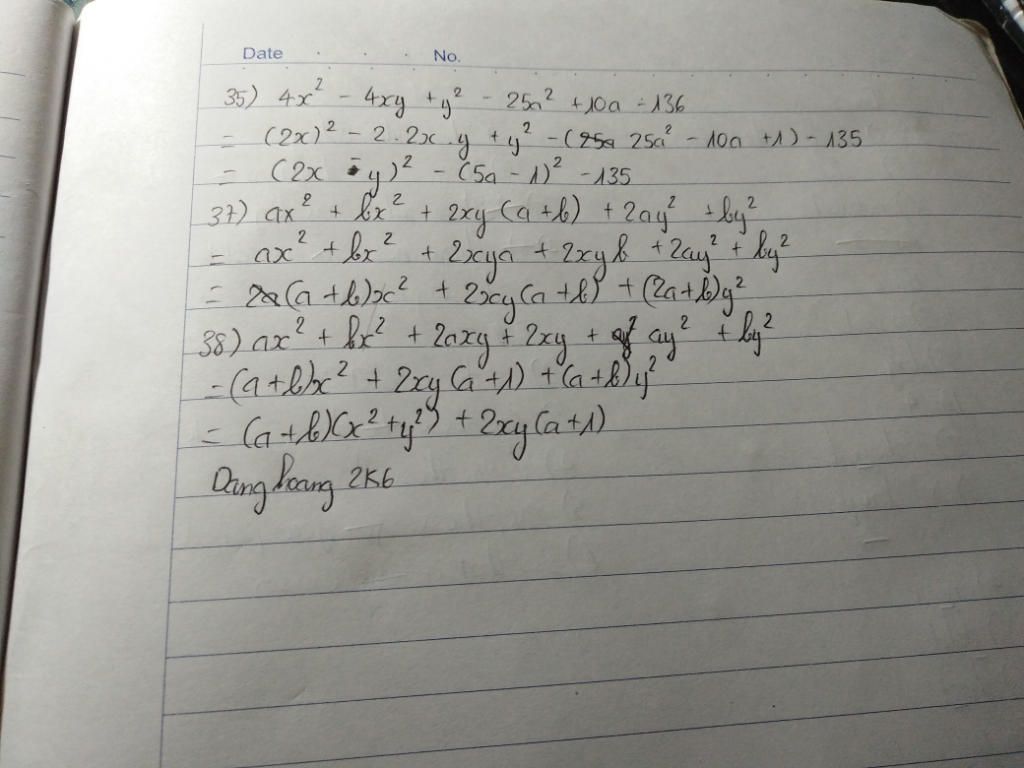 Date No.
35) 4x² - 4xy + y² - 25a² + 10a - 136
= (2x)² - 2.2x.y + y² - (25a 25a² - 10a + 1) - 135
= (2x - y)² - (5a - 1)² - 135
37) ax² + bx² + 2xy(a + b) + 2ay² + by²
= ax² + bx² + 2xya + 2xyb + 2ay² + by²
= (a + b)x² + 2xy(a + b) + (2a + b)y²
38) ax² + bx² + 2axy + 2xy + ay² + by²
= (a + b)x² + 2xy(a + 1) + (a + b)y²
= (a + b)(x² + y²) + 2xy(a + 1)
Danghoang 2K6